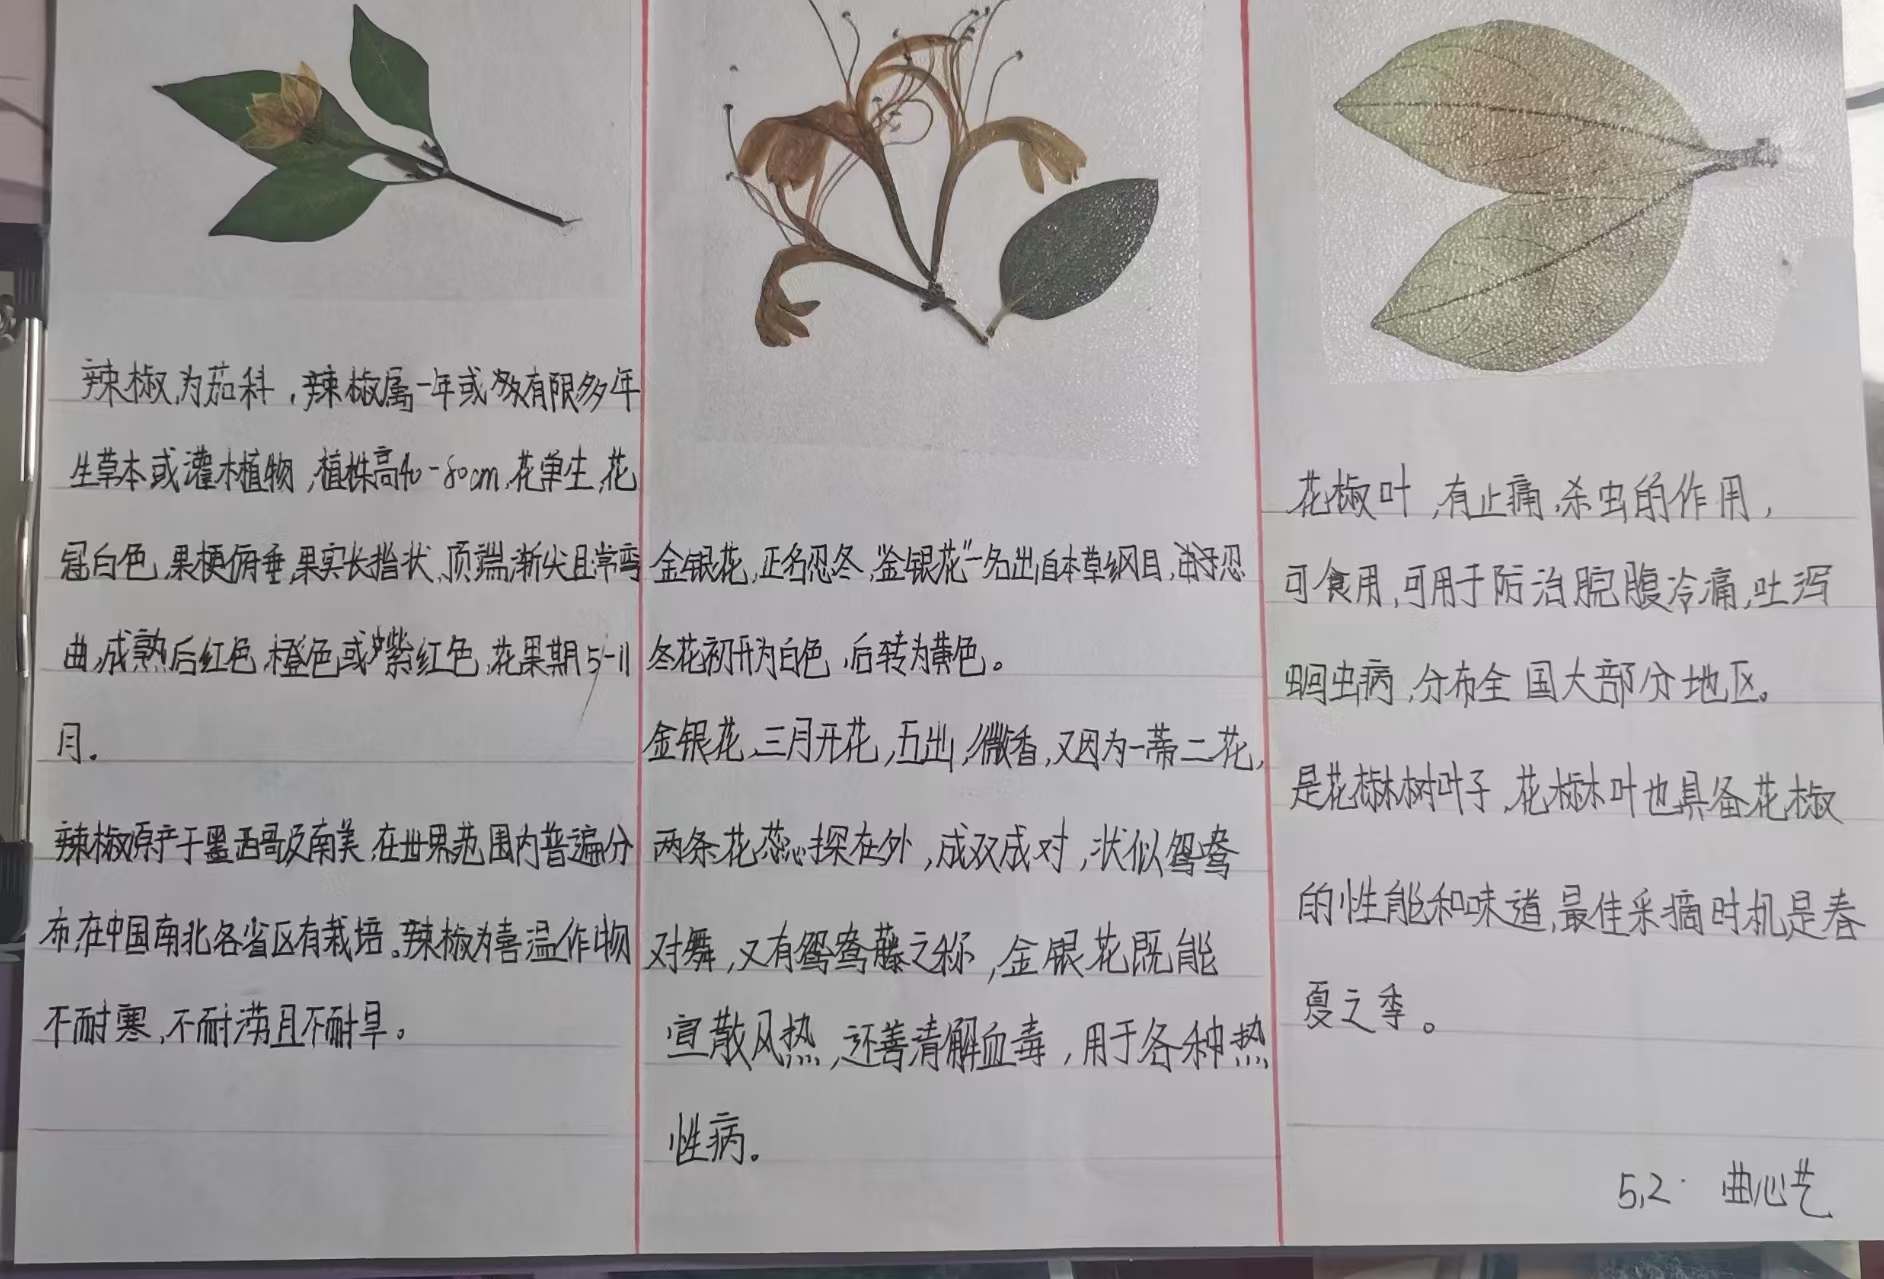 辣椒,为茄科,辣椒属一年或有限多年
生草本或灌木植物,植株高40-80cm,花单生,花
冠白色,果梗俯垂,果实长指状,顶端渐尖且常弯
曲,成熟后红色,橙色或紫红色,花果期5-11
月。
辣椒原产于墨西哥及南美,在世界范围内普遍分
布,在中国南北各省区有栽培。辣椒为喜温作物
不耐寒,不耐涝且不耐旱。
金银花,正名忍冬,“金银花”一名出自本草纲目,由于忍
冬花初开为白色,后转为黄色。
金银花,三月开花,五出,微香,又因为一蒂二花,
两条花蕊探在外,成双成对,状似鸳鸯
对舞,又有鸳鸯藤之称,金银花既能
宣散风热,还善清解血毒,用于各种热
性病。
花椒叶,有止痛,杀虫的作用,
可食用,可用于防治脘腹冷痛,吐泻
蛔虫病,分布全国大部分地区。
是花椒树叶子,花椒叶也具备花椒
的性能和味道,最佳采摘时机是春
夏之季。
5,2· 曲心艺